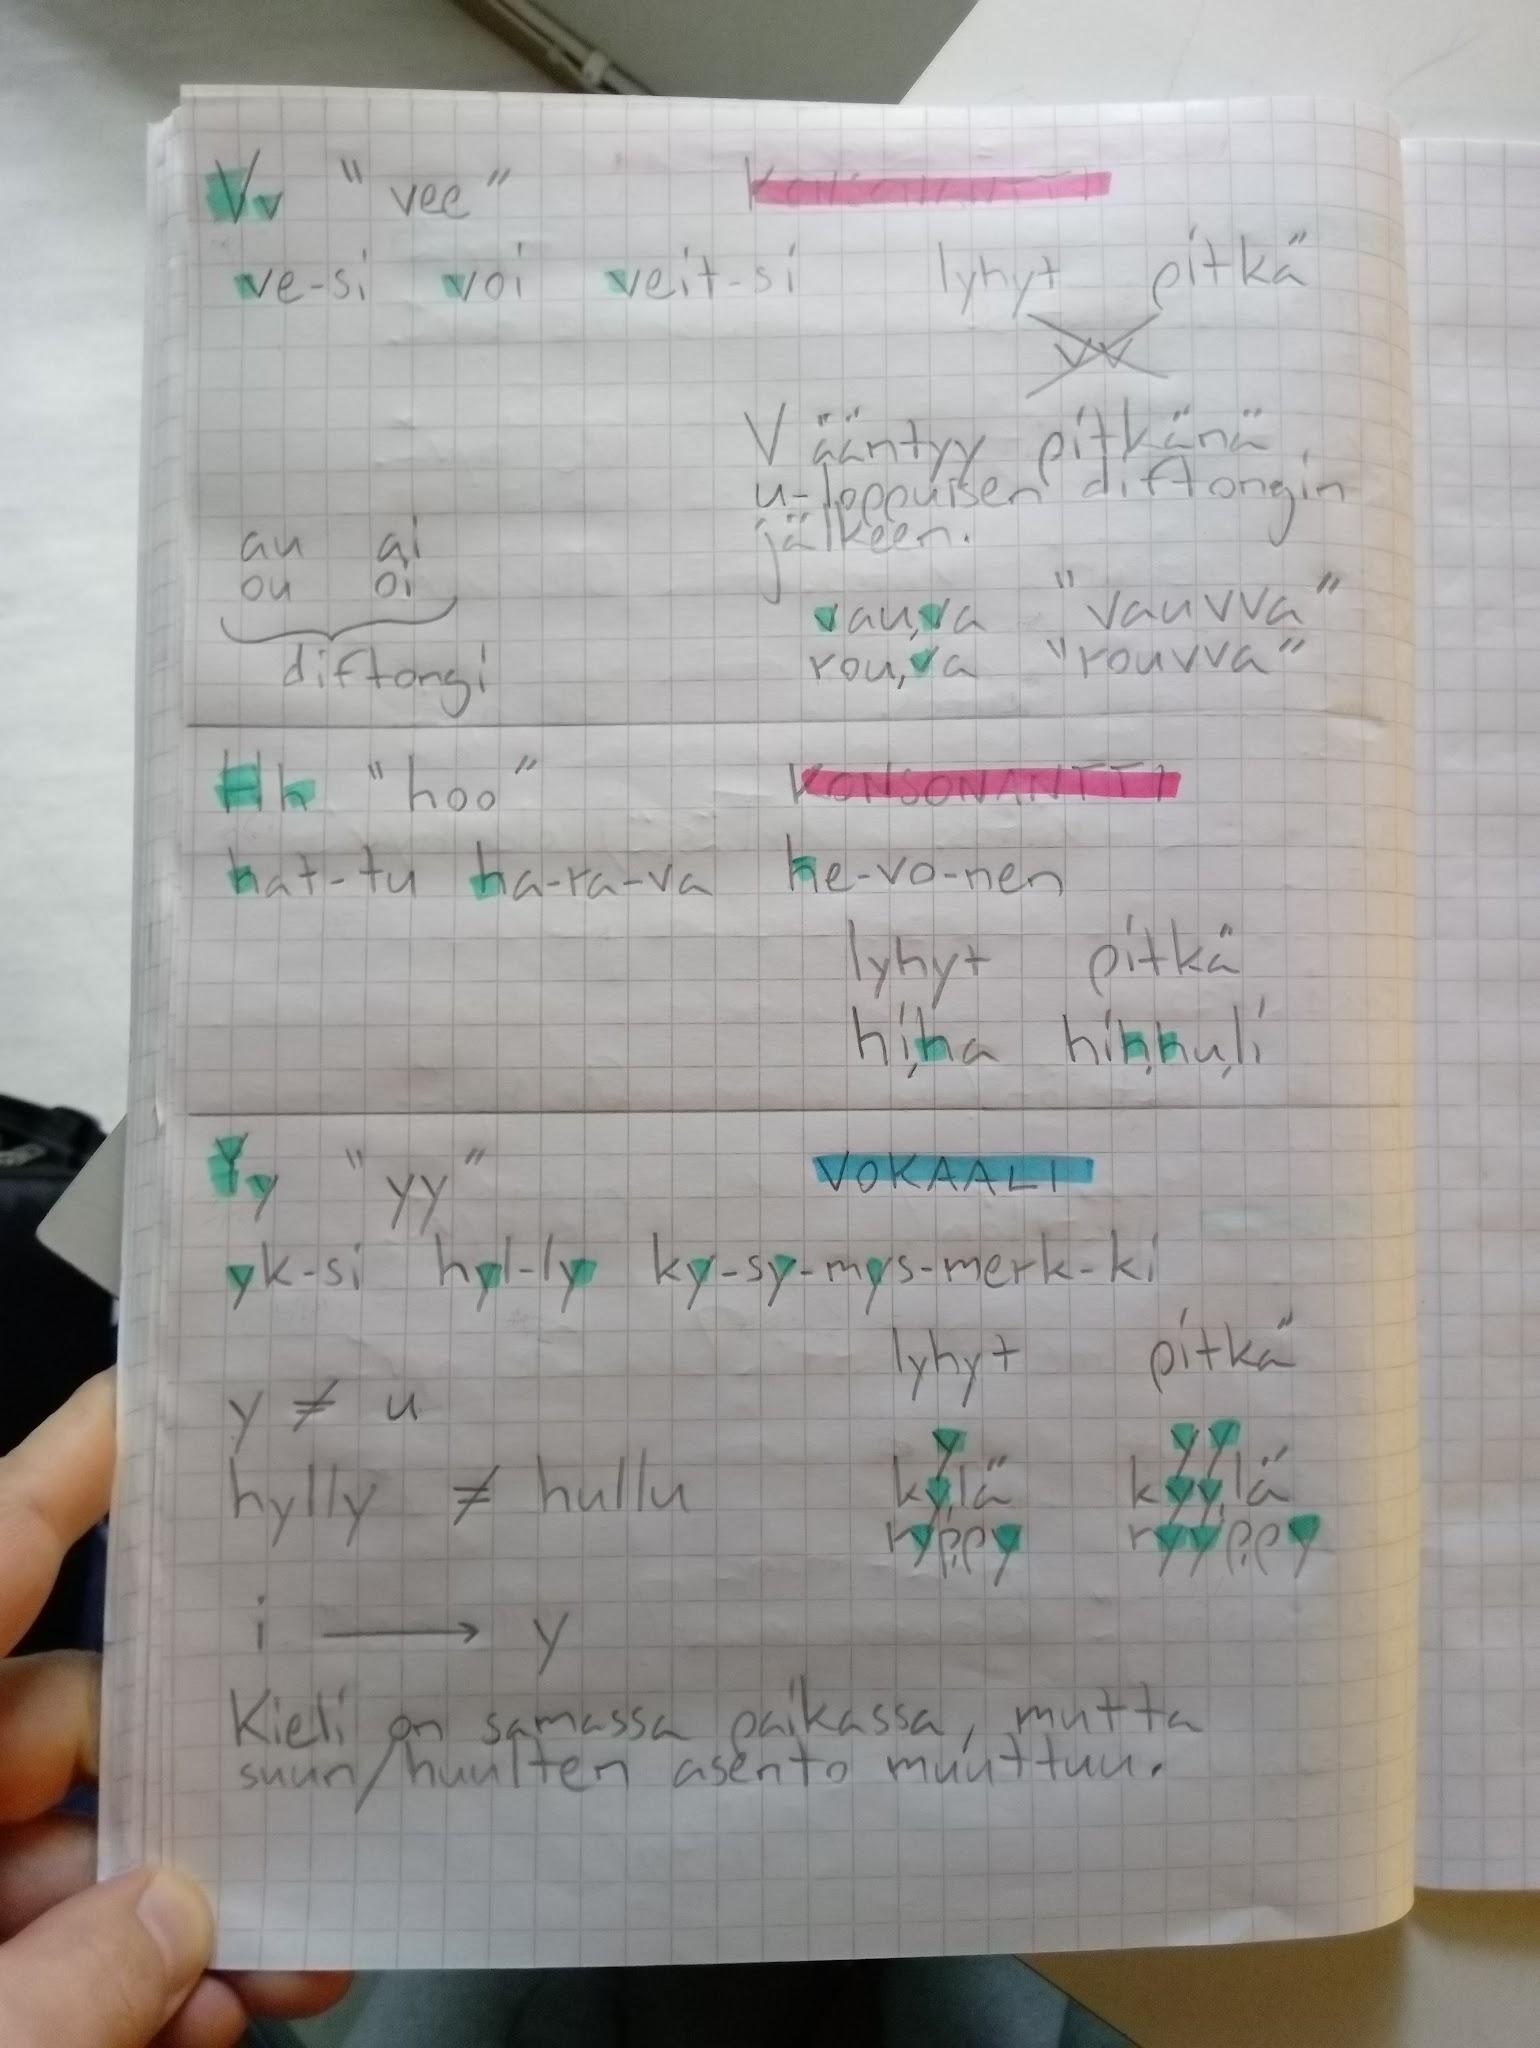 Vv "vee" KONSONANTTI
ve-si voi veit-si lyhyt pitkä
vv
V ääntyy pitkänä
u-loppuisen diftongin
jälkeen.
au ai
ou oi
diftongi
vau,va "vauvva"
rou,va "rouvva"
Hh "hoo" KONSONANTTI
hat-tu ha-ra-va he-vo-nen
lyhyt pitkä
hi,ha hih,hu,li
Yy "yy" VOKAALI
yk-si hyl-ly ky-sy-mys-merk-ki
lyhyt pitkä
y ≠ u
y yy
hylly ≠ hullu
ky,lä kyy,lä
ryp,py ryyp,py
i → y
Kieli on samassa paikassa, mutta
suun/huulten asento muuttuu.